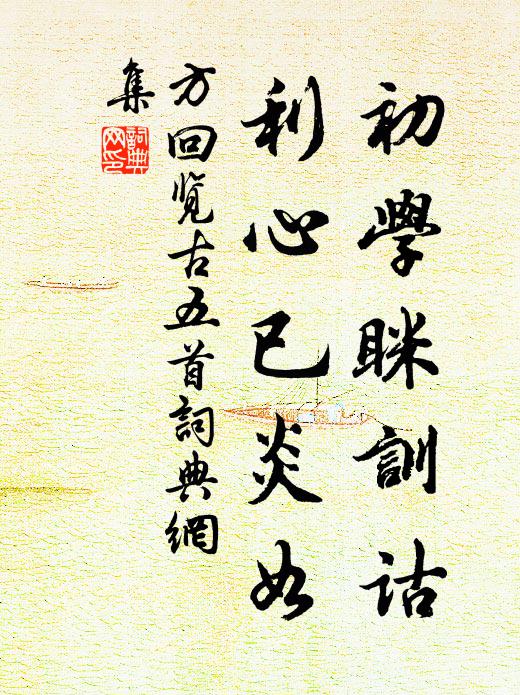 初學眯訓詁
利心已炎如
方回览古五首詞典網
集
詞典網印